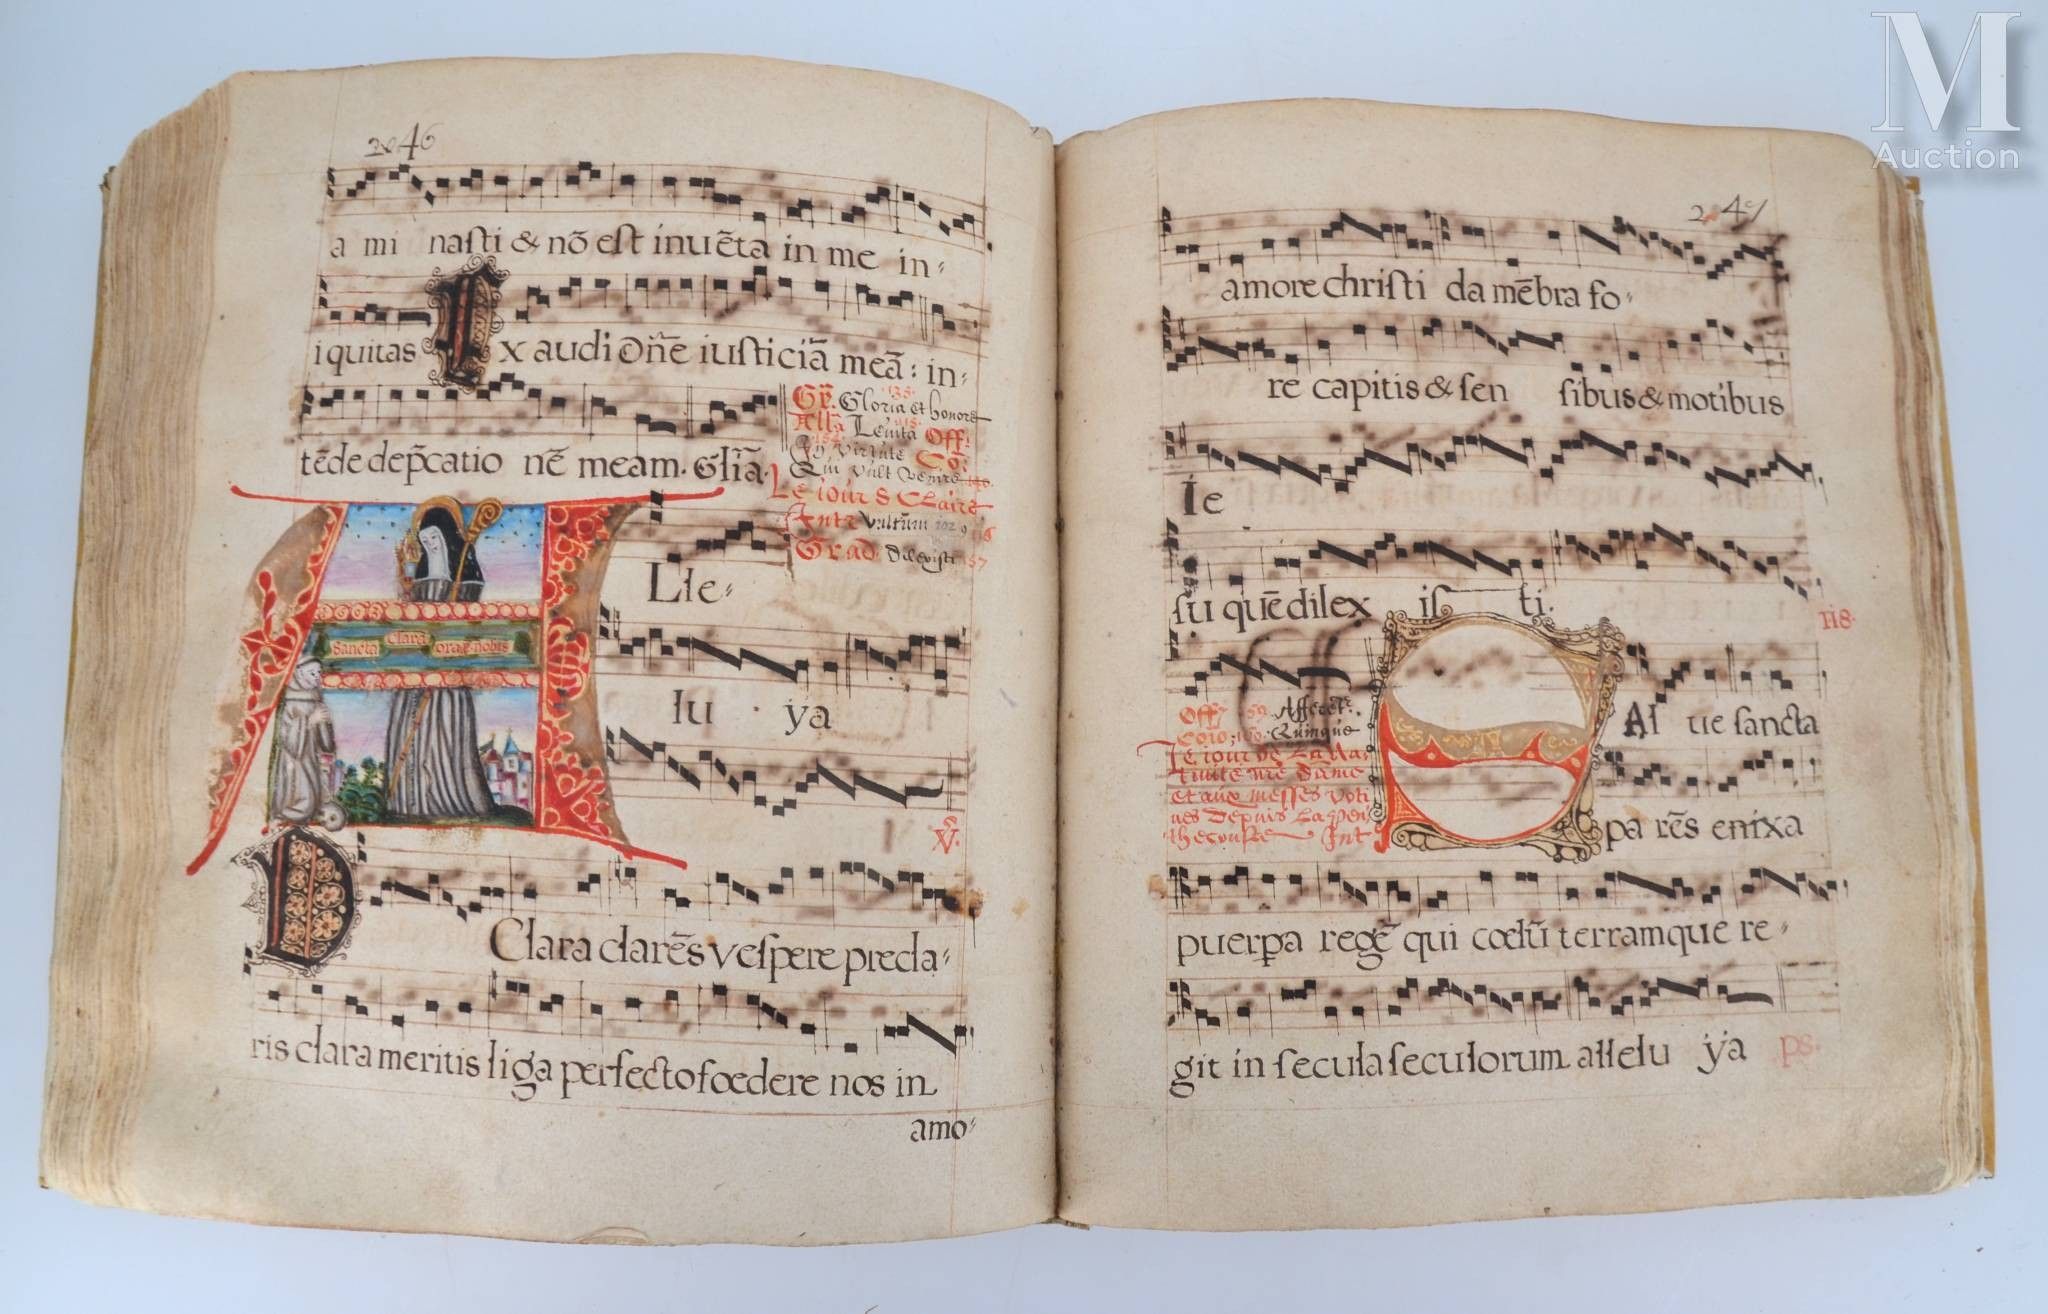 M
Auction
46
a mi nasti & nō est inuēta in me in⸗
iquitas Ex audi Dn̄e iusticiā meā : in⸗
tēde dep̄catio nē meam. Gl̄ia.
Gr. Gloria et honore
All̄a Leuita Off.
In virtute Co.
Qui vult venire
Le iour S Claire
Intr Vultum
Grad. Dilexisti 157
A Lle⸗
Sancta Clara ora p nobis
lu ya
V.
Clara clarēs vespere precla⸗
ris clara meritis liga perfecto foedere nos in
amo⸗
247
amore christi da mēbra fo⸗
re capitis & sen sibus & motibus
Ie
su quē dilex is ti.
118.
S Al ue sancta
Off. Affere͂t.
Coīo. Quinque
Le iour de la na⸗
tiuite nr̄e dame
et aux messes voti
ues depuis la pen
thecouste Int
pa rēs enixa
puerpa regē qui cœlū terramque re⸗
git in secula seculorum allelu ya ps.